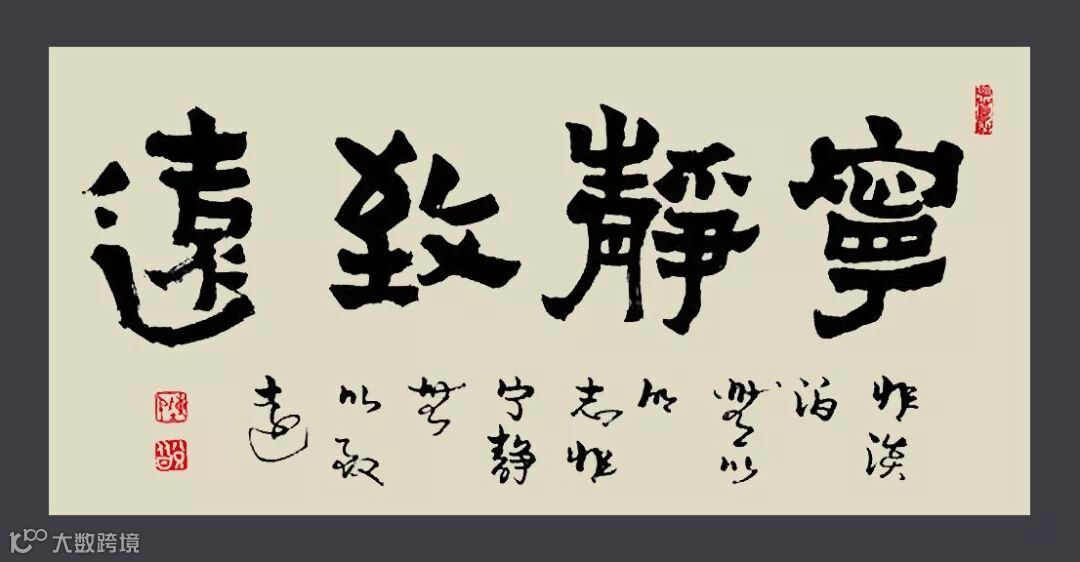 寧靜致遠
非淡
泊
無以
明
志非
宁静
無
以致
遠
大数跨境